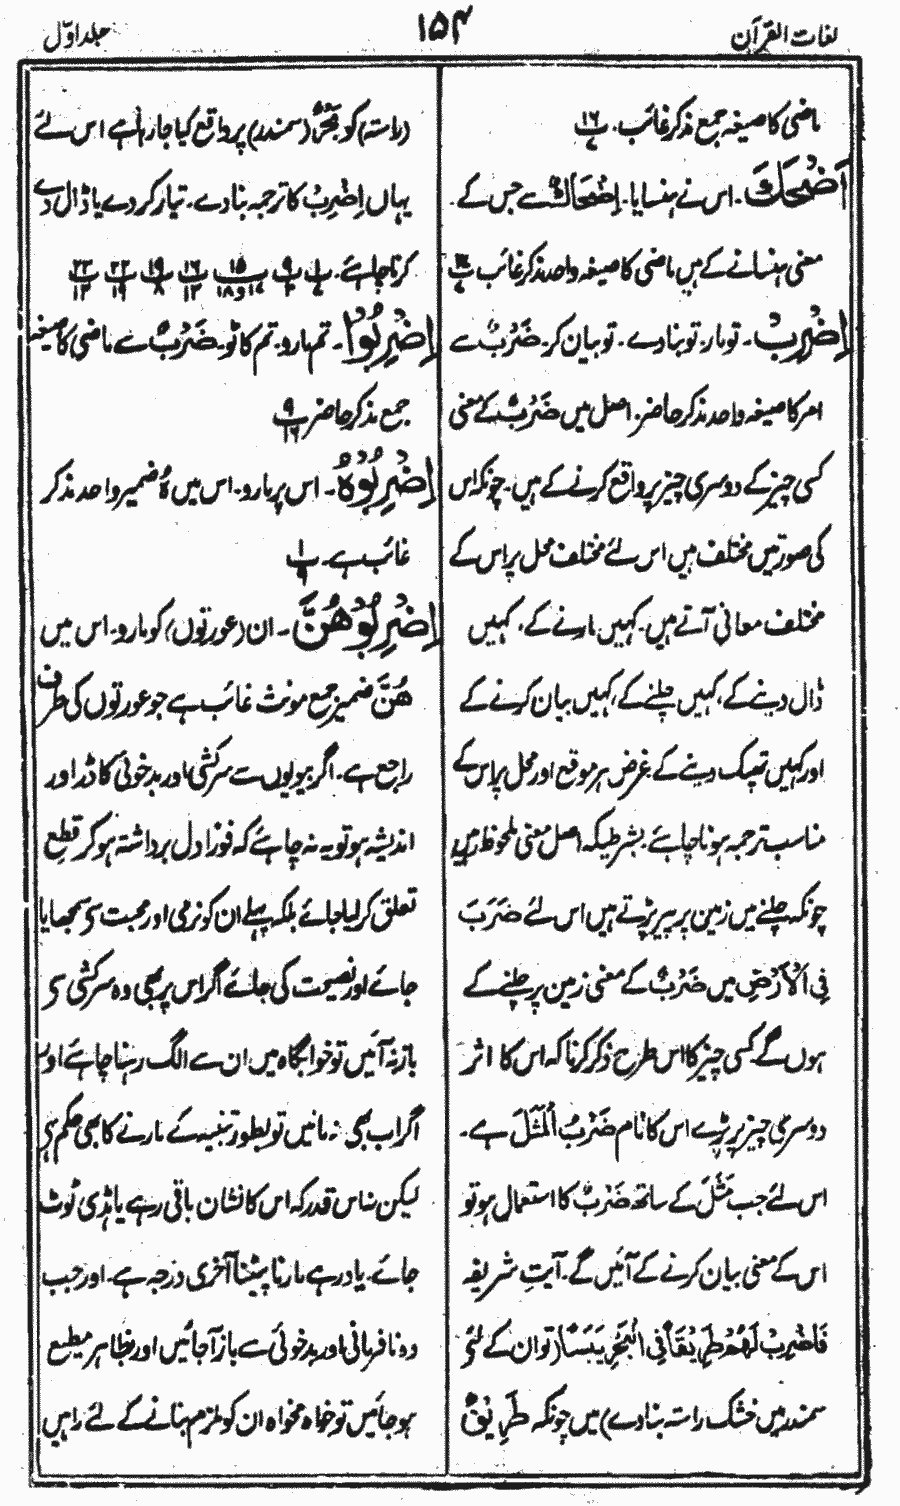 لغات القرآن
۱۵۴
جلد اوّل
ماضی کا صیغہ جمع مذکر غائب ۔ پ ۱۷
اَضْحَكَ ۔ اس نے ہنسایا۔ اِضْحَاكٌ سے جس کے
معنی ہنسانے کے ہیں ماضی کا صیغہ واحد مذکر غائب پ ۲۷
اِضْرِبْ ۔ تو مار۔ تو بنادے ۔ تو بیان کر۔ ضَرْبٌ سے
امر کا صیغہ واحد مذکر حاضر۔ اصل میں ضَرْبٌ کے معنی
کسی چیز کے دوسری چیز پر واقع کرنے کے ہیں۔ چونکہ اس
کی صورتیں مختلف ہیں اس لئے مختلف محل پر اس کے
مختلف معانی آتے ہیں۔ کہیں مارنے کے، کہیں
ڈال دینے کے، کہیں چلنے کے، کہیں بیان کرنے کے
اور کہیں تھپک دینے کے، غرض ہر موقع اور محل پر اس کے
مناسب ترجمہ ہونا چاہئے ۔ بشرطیکہ اصل معنی ملحوظ رہیں
چونکہ چلنے میں زمین پر پیر پڑتے ہیں اس لئے ضَرَبَ
فِی الْاَرْضِ میں ضَرْبٌ کے معنی زمین پر چلنے کے
ہوں گے کسی چیز کا اس طرح ذکر کرنا کہ اس کا اثر
دوسری چیز پر پڑے اس کا نام ضَرْبُ الْمَثَلَ ہے ۔
اس لئے جب مَثَلَ کے ساتھ ضَرْبٌ کا استعمال ہو تو
اس کے معنی بیان کرنے کے آئیں گے۔ آیتِ شریفہ
فَاضْرِبْ لَهُمْ طَرِيْقًا فِی الْبَحْرِ يَبَسًا (تو ان کے لئے
سمندر میں خشک راستہ بنادے) میں چونکہ طَرِيْقٌ
(راستہ) کو بَحْرٌ (سمندر) پر واقع کیا جا رہا ہے اس لئے
یہاں اِضْرِبْ کا ترجمہ بنادے۔ تیار کر دے یا ڈال دے
کرنا چاہئے۔ پ ۱ پ ۹ پ ۱۵ ۱۷ و ۱۸ پ ۱۶ ۱۳ پ ۱۹ ۸ پ ۲۲ ۱۹ پ ۲۳ ۱۲
اِضْرِبُوْا ۔ تم مارو۔ تم کاٹو۔ ضَرْبٌ سے ماضی کا صیغہ
جمع مذکر حاضر پ ۹ ۱۶
اِضْرِبُوْهُ ۔ اس پر مارو۔ اس میں هُ ضمیر واحد مذکر
غائب ہے ۔ پ ۱ ۹
اِضْرِبُوْهُنَّ ۔ ان (عورتوں) کو مارو۔ اس میں
هُنَّ ضمیر جمع مونث غائب ہے جو عورتوں کی طرف
راجع ہے ۔ اگر بیویوں سے سرکشی اور بدخوئی کا ڈر اور
اندیشہ ہو تو یہ نہ چاہئے کہ فوراً دل برداشتہ ہو کر قطع
تعلق کر لیا جائے بلکہ پہلے ان کو نرمی اور محبت سے سمجھایا
جائے اور نصیحت کی جائے اگر اس پر بھی وہ سرکشی سے
باز نہ آئیں تو خوابگاہ میں ان سے الگ رہنا چاہئے اور
اگر اب بھی نہ مانیں تو بطور تنبیہ کے مارنے کا بھی حکم ہے
لیکن نہ اس قدر کہ اس کا نشان باقی رہے یا ہڈی ٹوٹ
جائے۔ یاد رہے مارنا پیٹنا آخری درجہ ہے ۔ اور جب
وہ نافرمانی اور بدخوئی سے باز آجائیں اور بظاہر مطیع
ہو جائیں تو خواہ مخواہ ان کو ملزم بنانے کے لئے راہیں